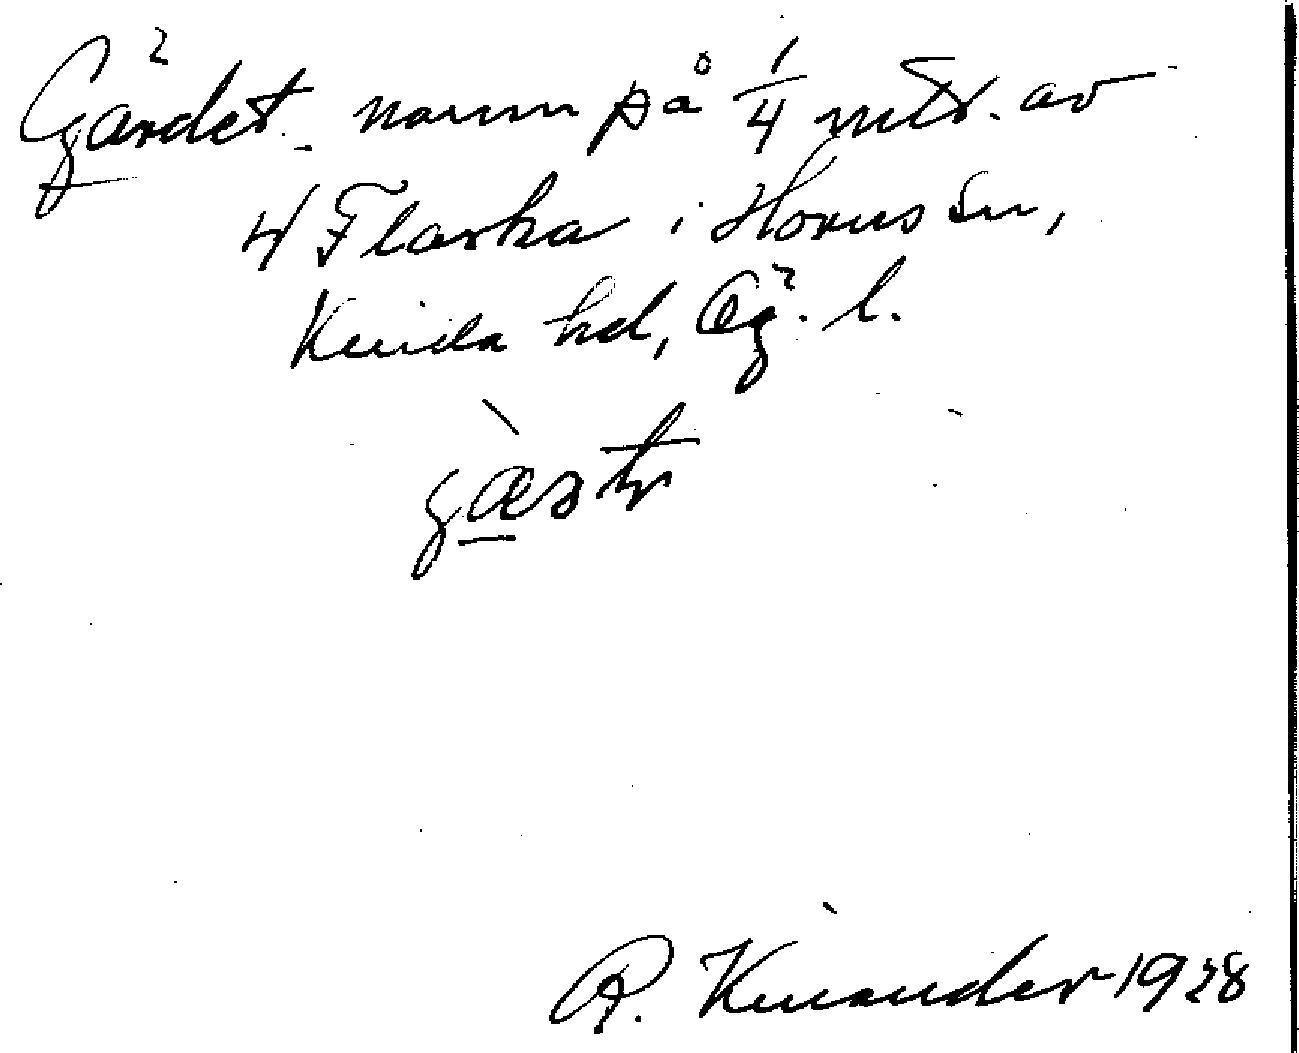 Gärdet. namn på 1/4 mtl. av
4 Flaska i Horns sn,
Kinda hd, Ög. l.
gæstr
R. Kinander 1928